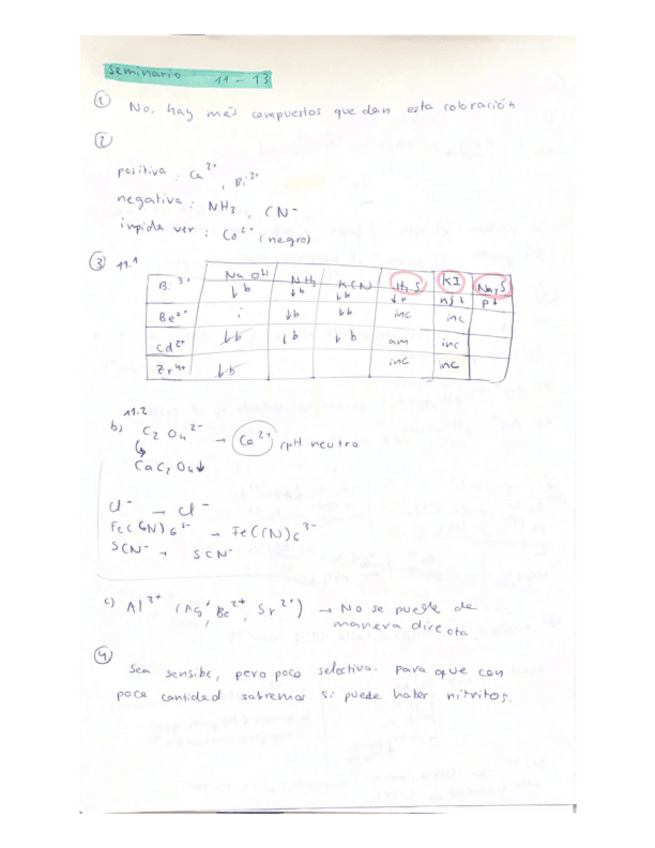 Seminario 11-13
① No, hay más compuestos que dan esta coloración
②
positiva: Ca²⁺, Bi³⁺
negativa: NH3, CN⁻
impide ver: Co²⁺ (negro)
③ 11.1
NaOH NH3 KCN H2S KI Na2S
Bi³⁺ ↓b ↓b ↓b
Be²⁺ i ↓b ↓b inc inc
Cd²⁺ ↓b ↓b ↓b am inc
Zr⁴⁺ ↓b inc inc
11.2
b) C2O4²⁻ → Ca²⁺ (pH neutro
CaC2O4↓
Cl⁻ → Cl⁻
Fe(CN)6³⁻ → Fe(CN)6³⁻
SCN⁻ → SCN⁻
c) Al³⁺ (Ag⁺, Be²⁺, Sr²⁺) → No se puede de
manera directa.
④
Sea sensibe, pero poco selectiva. Para que con
poca cantidad sabremos si puede haber nitritos.